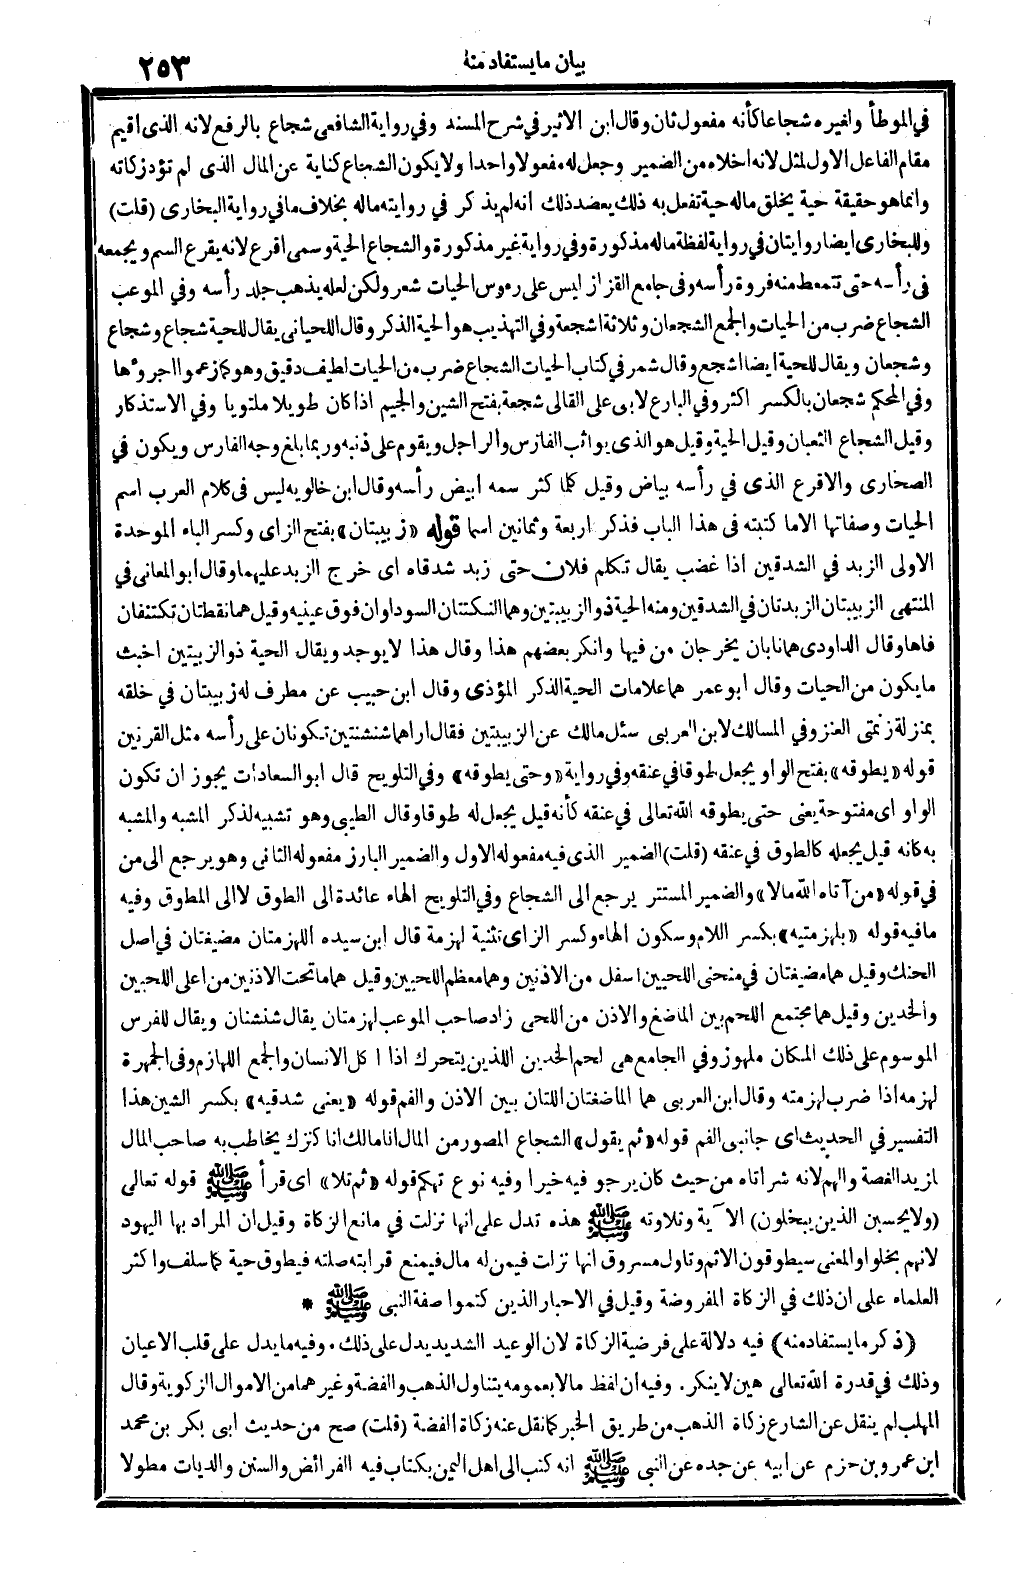 بيان ما يستفاد منه
٢٥٣
في الموطأ ولغيره شجاعا كأنه مفعول ثان وقال ابن الاثير في شرح المسند وفي رواية الشافعى شجاع بالرفع لانه الذى اقيم
مقام الفاعل الاول لمثل لانه اخلاه من الضمير وجعل له مفعولا واحدا ولا يكون الشجاع كناية عن المال الذى لم تؤد زكاته
وانما هو حقيقة حية يخلق ماله حية تفعل به ذلك يعضد ذلك انه لم يذكر في روايته ماله بخلاف ما في رواية البخارى (قلت)
وللبخارى ايضا روايتان في رواية لفظة ماله مذكورة وفي رواية غير مذكورة والشجاع الحية وسمى اقرع لانه يقرع السم ويجمعه
فى رأسه حتى تتمعط منه فروة رأسه وفى جامع القزاز ليس على رءوس الحيات شعر ولكن لعله يذهب جلد رأسه وفي الموعب
الشجاع ضرب من الحيات والجمع الشجعان وثلاثة اشجعة وفي التهذيب هو الحية الذكر وقال اللحيانى يقال للحية شجاع وشجاع
وشجعان ويقال للحية ايضا اشجع وقال شمر في كتاب الحيات الشجاع ضرب من الحيات لطيف دقيق وهو كما زعموا اجرؤها
وفي المحكم شجعان بالكسر اكثر وفي البارع لابى على القالى شجعة بفتح الشين والجيم اذا كان طويلا ملتويا وفي الاستذكار
وقيل الشجاع الثعبان وقيل الحية وقيل هو الذى يواثب الفارس والراجل ويقوم على ذنبه وربما بلغ وجه الفارس ويكون في
الصحارى والاقرع الذى في رأسه بياض وقيل كلما كثر سمه ابيض رأسه وقال ابن خالويه ليس فى كلام العرب اسم
الحيات وصفاتها الا ما كتبته فى هذا الباب فذكر اربعة وثمانين اسما قوله «زبيبتان» بفتح الزاى وكسر الباء الموحدة
الاولى الزبد في الشدقين اذا غضب يقال تكلم فلان حتى زبد شدقاه اى خرج الزبد عليهما وقال ابو المعانى في
المنتهى الزبيبتان الزبدتان في الشدقين ومنه الحية ذو الزبيبتين وهما النكتتان السوداوان فوق عينيه وقيل هما نقطتان تكتنفان
فاها وقال الداودى هما نابان يخرجان من فيها وانكر بعضهم هذا وقال هذا لا يوجد ويقال الحية ذو الزبيبتين اخبث
ما يكون من الحيات وقال ابو عمر هما علامات الحية الذكر المؤذى وقال ابن حبيب عن مطرف له زبيبتان في خلقه
بمنزلة زنمتى العنز وفي المسالك لابن العربى سئل مالك عن الزبيبتين فقال اراهما شنشنتين تكونان على رأسه مثل القرنين
قوله «يطوقه» بفتح الواو يجعل طوقا في عنقه وفي رواية «وحتى يطوقه» وفي التلويح قال ابو السعادات يجوز ان تكون
الواو اى مفتوحة يعنى حتى يطوقه الله تعالى في عنقه كأنه قيل يجعل له طوقا وقال الطيبى وهو تشبيه لذكر المشبه والمشبه
به كانه قيل يجعله كالطوق في عنقه (قلت) الضمير الذى فيه مفعوله الاول والضمير البارز مفعوله الثانى وهو يرجع الى من
في قوله «من آتاه الله مالا» والضمير المستتر يرجع الى الشجاع وفي التلويح الهاء عائدة الى الطوق لا الى المطوق وفيه
ما فيه قوله «بلهزمتيه» بكسر اللام وسكون الهاء وكسر الزاى تثنية لهزمة قال ابن سيده اللهزمتان مضيغتان في اصل
الحنك وقيل هما مضيغتان في منحنى اللحيين اسفل من الاذنين وهما معظم اللحيين وقيل هما ما تحت الاذنين من اعلى اللحيين
والخدين وقيل هما مجتمع اللحم بين الماضغ والاذن من اللحى زاد صاحب الموعب لهزمتان يقال شنشنان ويقال للفرس
الموسوم على ذلك المكان ملهوز وفي الجامع هى لحم الخدين اللذين يتحرك اذا اكل الانسان والجمع اللهازم وفى الجمهرة
لهزمه اذا ضرب لهزمته وقال ابن العربى هما الماضغتان اللتان بين الاذن والفم قوله «يعنى شدقيه» بكسر الشين هذا
التفسير في الحديث اى جانبى الفم قوله «ثم يقول» الشجاع المصور من المال انا مالك انا كنزك يخاطب به صاحب المال
لزيد الغصة والهم لانه شر اتاه من حيث كان يرجو فيه خيرا وفيه نوع تهكم قوله «ثم تلا» اى قرأ ﷺ قوله تعالى
(ولا يحسبن الذين يبخلون) الآية وتلاوته ﷺ هذه تدل على انها نزلت في مانع الزكاة وقيل ان المراد بها اليهود
لانهم بخلوا والمعنى سيطوقون الاثم وتاول مسروق انها نزلت فيمن له مال فيمنع قرابته صلته فيطوق حية كما سلف واكثر
العلماء على ان ذلك في الزكاة المفروضة وقيل في الاحبار الذين كتموا صفة النبى ﷺ *
(ذكر ما يستفاد منه) فيه دلالة على فرضية الزكاة لان الوعيد الشديد يدل على ذلك . وفيه ما يدل على قلب الاعيان
وذلك في قدرة الله تعالى هين لا ينكر . وفيه ان لفظ مالا بعمومه يتناول الذهب والفضة وغيرهما من الاموال الزكوية وقال
المهلب لم ينقل عن الشارع زكاة الذهب من طريق الخبر كما نقل عنه زكاة الفضة (قلت) صح من حديث ابى بكر بن محمد
ابن عمرو بن حزم عن ابيه عن جده عن النبى ﷺ انه كتب الى اهل اليمن بكتاب فيه الفرائض والسنن والديات مطولا